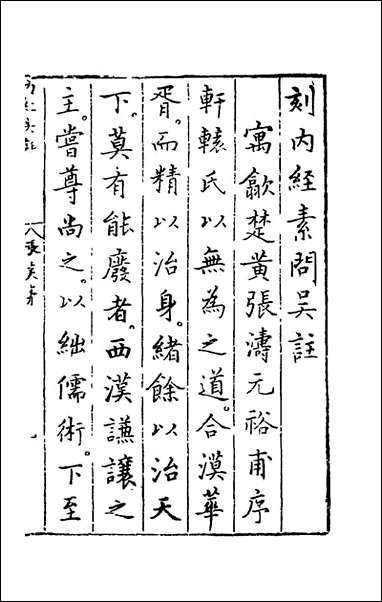 刻内經素問吳註
寓歙楚黄張濤元裕甫序
軒轅氏以無為之道。合漠華
胥。而精以治身。緒餘以治天
下。莫有能廢者。西漢謙讓之
主。嘗尊尚之。以絀儒術。下至